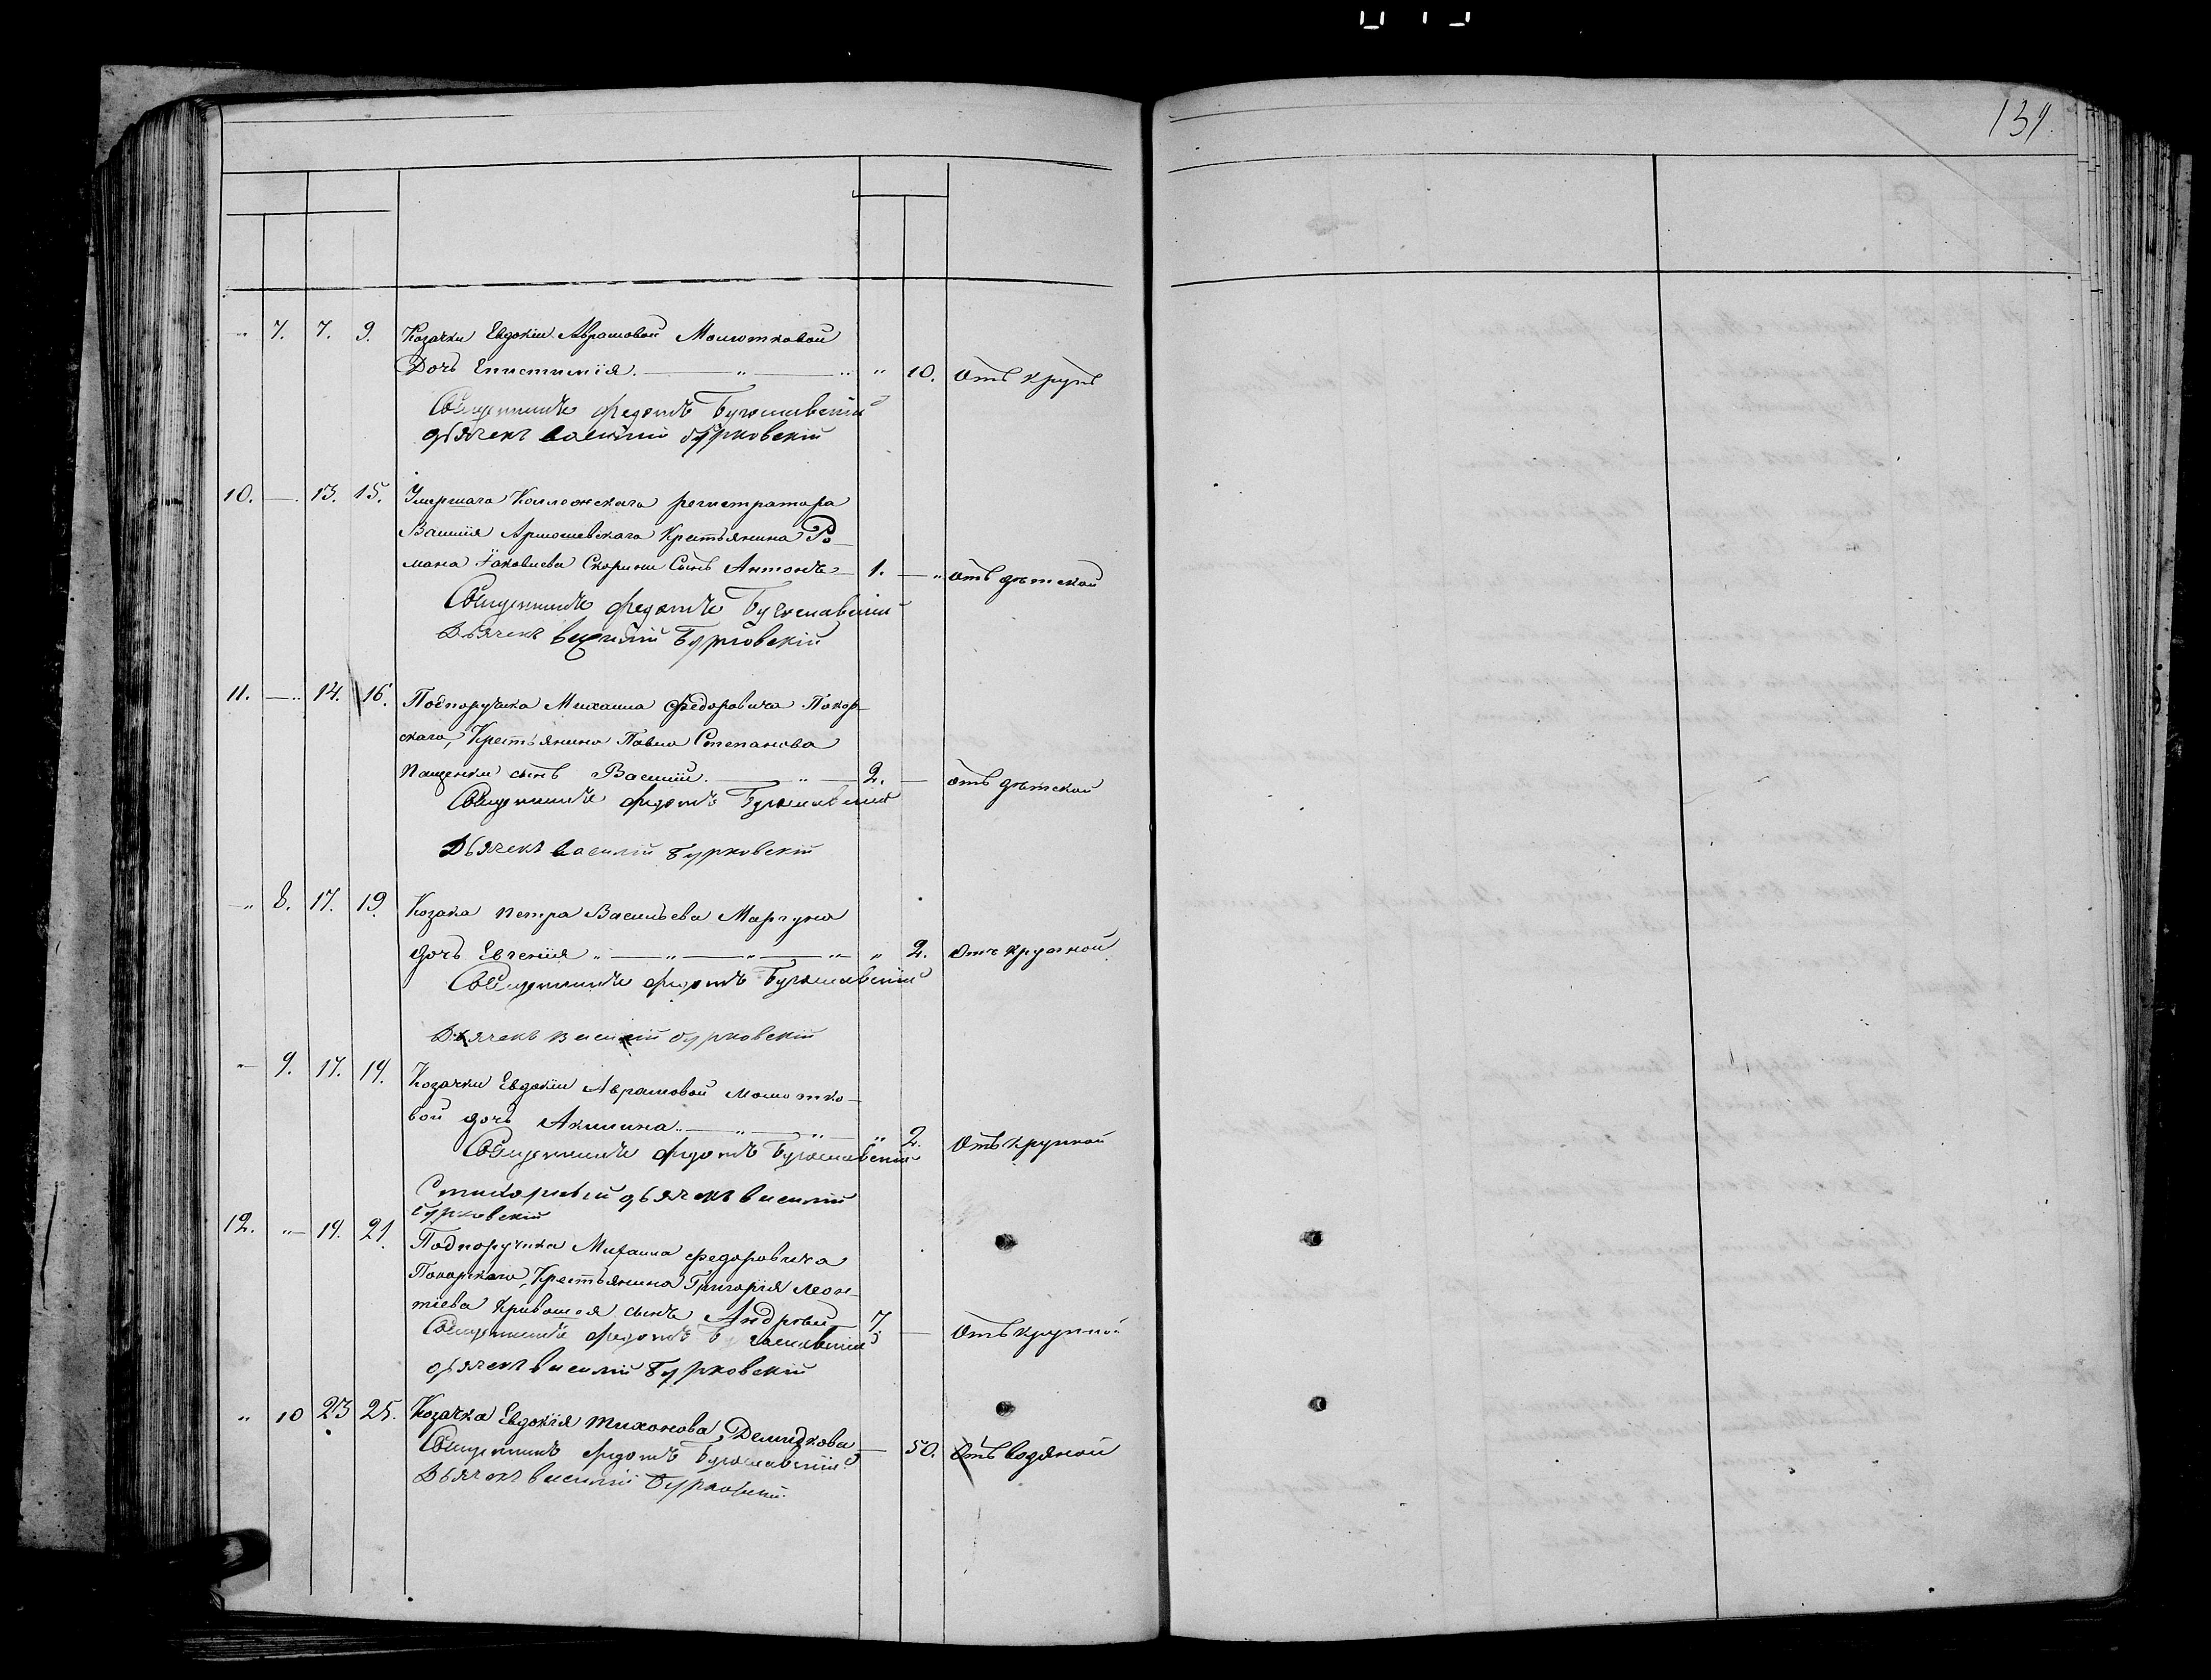 139.
" 7. 7. 9. Козачки Евдокіи Аврамовой Молотковой
Дочь Епистимія. " " 10. Отъ крупъ
Священникъ Федотъ Бугославскій
Дьячекъ Василій Бурковскій
10. — 13. 15. Умершаго Коллежскаго регистратора
Василія Ярмошевскаго Крестьянина Ро-
мана Яковлева Скорини Сынъ Антонъ 1. — " отъ дѣтской
Священникъ Федотъ Бугославскій
Дьячекъ Василій Бурковскій
11. — " 14. 16. Подпоручика Михаила Федоровича Покор-
скаго, Крестьянина Павла Степанова
Пащенки сынъ Василій. " 2. — отъ дѣтской
Священникъ Федотъ Бугославскій
Дьячекъ Василій Бурковскій
" 8. 17. 19. Козака Петра Васильева Маргуна
дочь Евгенія " " " " " 2. отъ крупной
Священникъ Федотъ Бугославскій
Дьячекъ Василій Бурковскій
" 9. 17. 19. Козачки Евдокіи Аврамовой Молотко-
вой дочь Акилина " " " 2. Отъ крупной
Священникъ Федотъ Бугославскій
Стихарный дьячекъ Василій
Бурковскій
12. " 19. 21. Подпоручика Михаила Федоровича
Покорскаго, Крестьянина Григорія Леон-
тіева Кривошея сынъ Андрей 7. — Отъ крупной
Священникъ Федотъ Бугославскій
дьячекъ Василій Бурковскій
" 10 23 25. Козачка Евдокія Тихонова Демидкова — 50. Отъ водяной
Священникъ Федотъ Бугославскій
Дьячекъ Василій Бурковскій